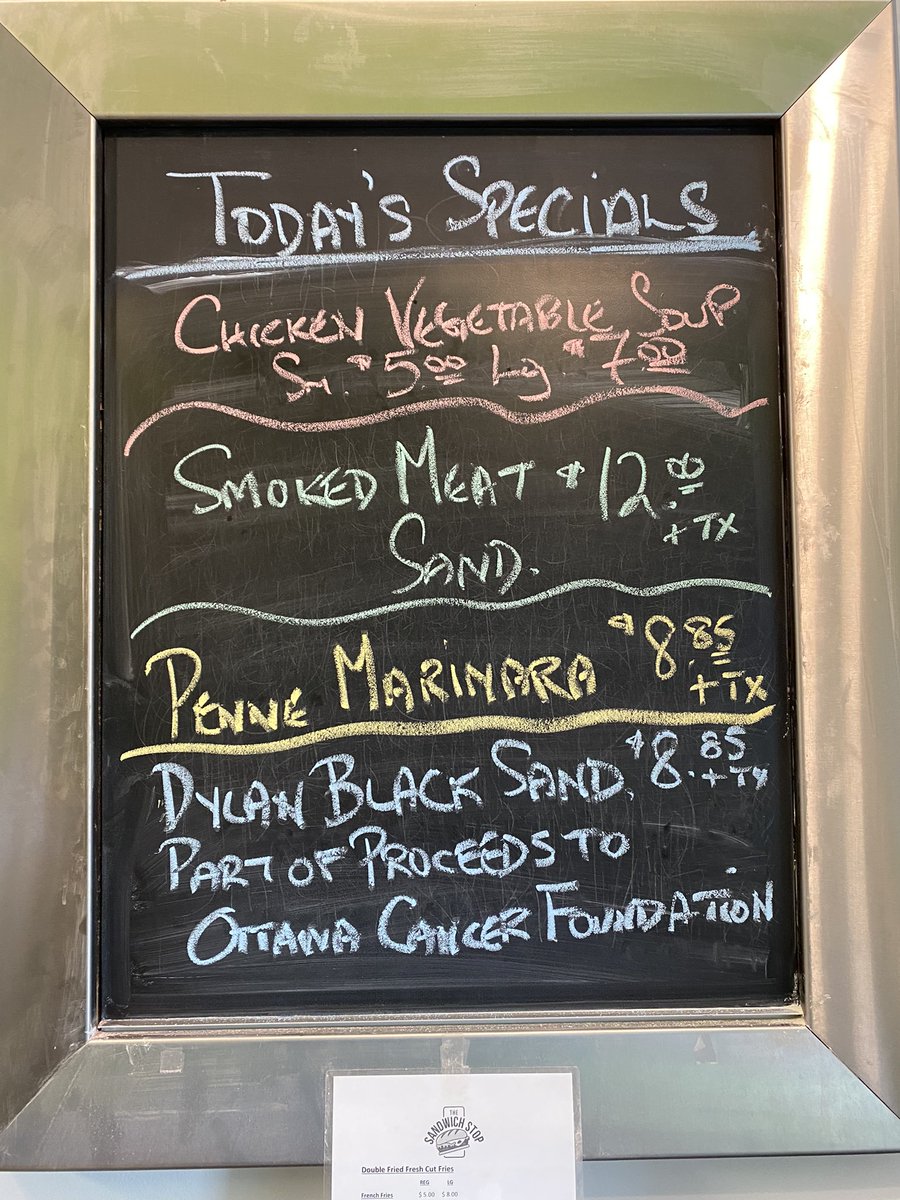 TODAY'S SPECIALS
CHICKEN VEGETABLE SOUP
Sm. $5.00 Lg $7.00
SMOKED MEAT $12.00
+TX
SAND.
PENNE MARINARA $8.85
+TX
DYLAN BLACK SAND. $8.85
+TX
PART OF PROCEEDS TO
OTTAWA CANCER FOUNDATION
THE
SANDWICH STOP
Double Fried Fresh Cut Fries
REG LG
French Fries $5.00 $8.00